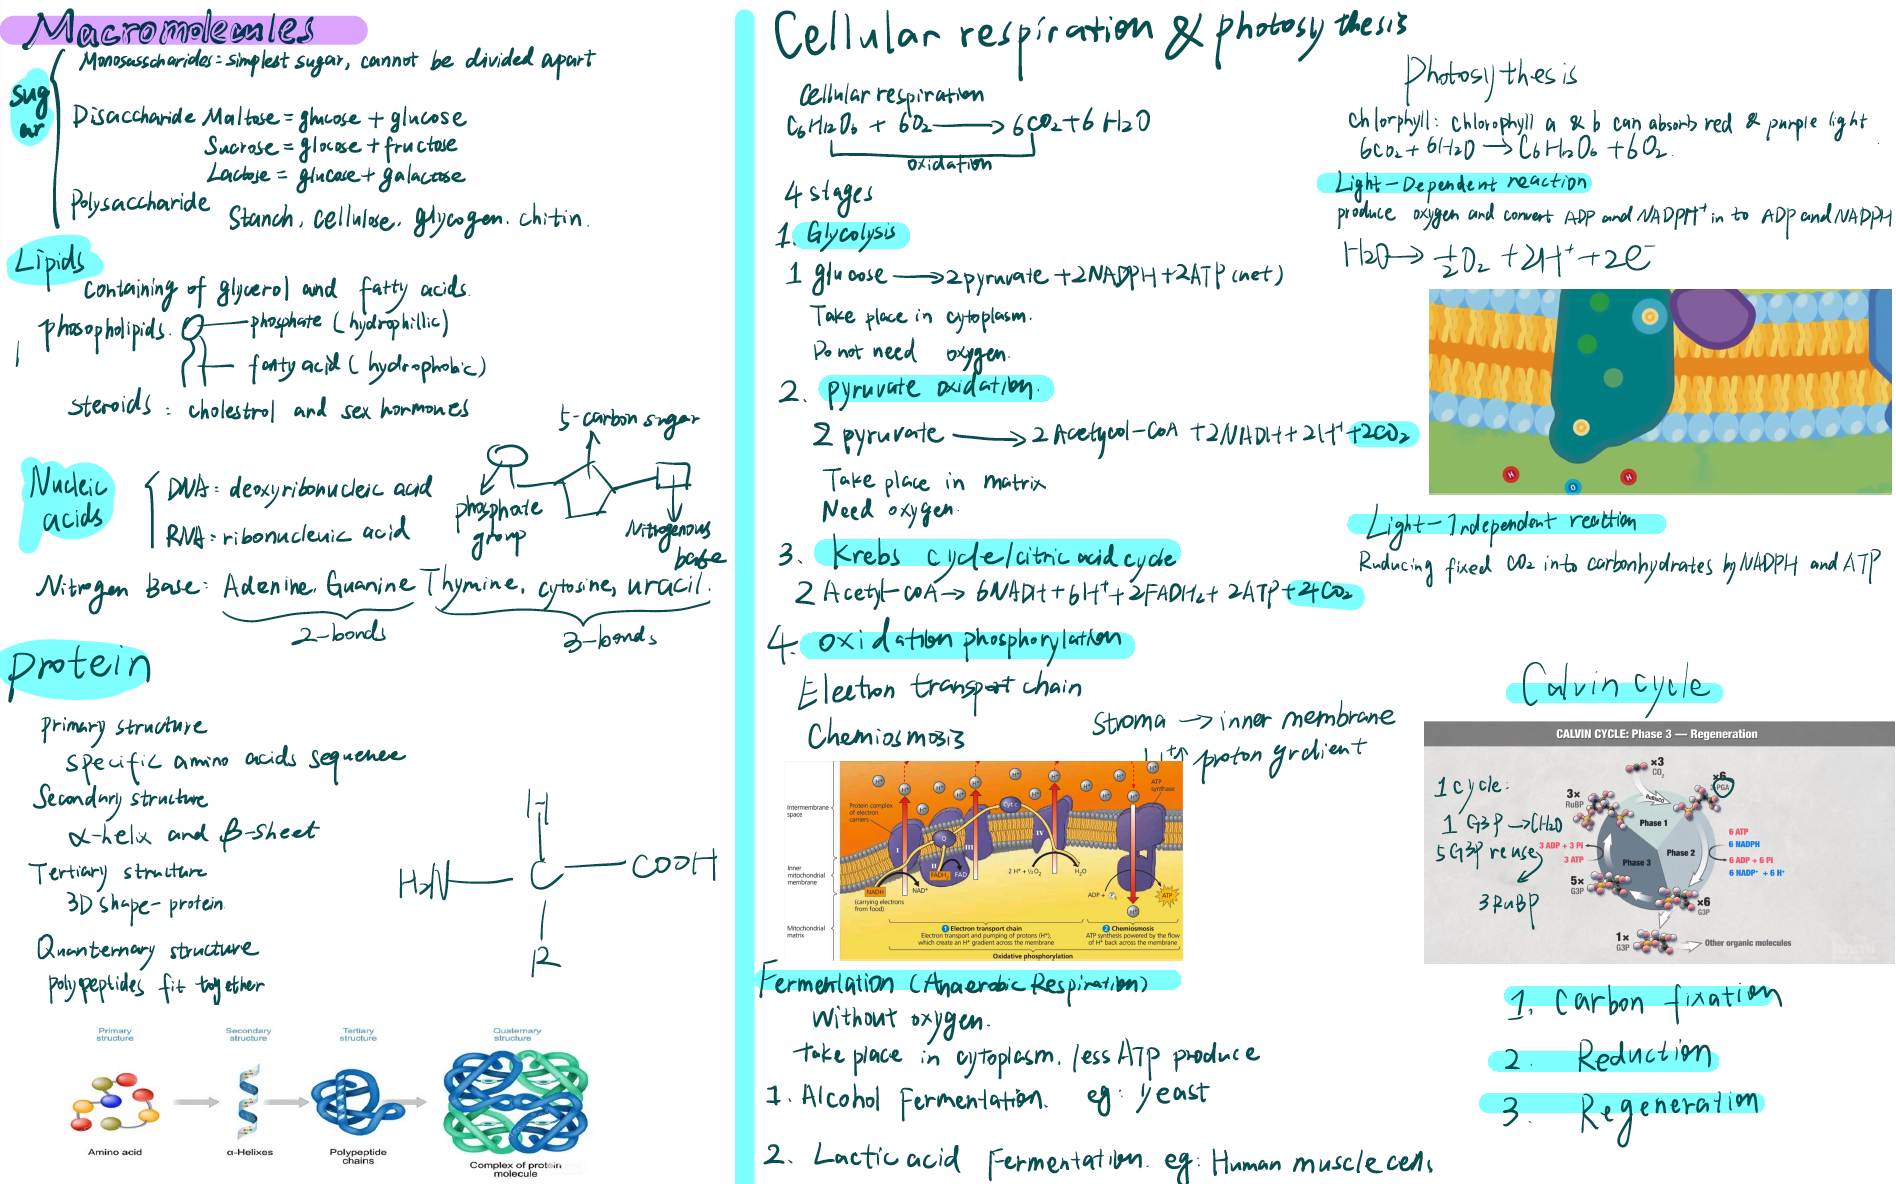 Macromolecules
sugar
Monosasscharides = simplest sugar, cannot be divided apart
Disaccharide Maltose = glucose + glucose
Sucrose = glocose + fructose
Lactose = glucose + galactose
Polysaccharide Stanch, cellulose, glycogen. chitin.
Lipids
containing of glycerol and fatty acids.
phosopholipids. phosphate (hydrophillic)
fatty acid (hydrophobic)
steroids : cholestrol and sex hormones
Nucleic acids
DNA = deoxyribonucleic acid
RNA = ribonucleuic acid
5-carbon sugar
phosphate group
Nitrogenous base
Nitrogen Base: Adenine, Guanine Thymine, cytosine, uracil.
2-bonds
3-bonds
protein
primary structure
specific amino acids sequence
Secondary structure
α-helix and β-sheet
Tertiary structure
3D shape-protein
Quanternary structure
polypeptides fit together
H
H2N C COOH
R
Primary structure
Secondary structure
Tertiary structure
Quaternary structure
Amino acid
α-Helixes
Polypeptide chains
Complex of protein molecule
Cellular respiration & photosythesis
Cellular respiration
C6H12O6 + 6O2 → 6CO2 + 6H2O
oxidation
4 stages
1. Glycolysis
1 glucose → 2pyruvate + 2NADPH + 2ATP (net)
Take place in cytoplasm.
Do not need oxygen.
2. pyruvate oxidation.
2 pyruvate → 2 Acetycol-CoA + 2NADH + 2H+ + 2CO2
Take place in matrix
Need oxygen.
3. Krebs cycle/citric acid cycle
2 Acetyl-coA → 6NADH + 6H+ + 2FADH2 + 2ATP + 4CO2
4. oxidation phosphorylation
Electron transport chain
Chemiosmosis
Stroma → inner membrane
H+↑ proton grdient
Intermembrane space
Inner mitochondrial membrane
Mitochondrial matrix
Protein complex of electron carriers
H+
Cyt c
Q
I
II
III
IV
ATP synthase
FADH2
FAD
NADH
NAD+
(carrying electrons from food)
2 H+ + ½ O2
H2O
ADP +
ATP
1 Electron transport chain
Electron transport and pumping of protons (H+),
which create an H+ gradient across the membrane
2 Chemiosmosis
ATP synthesis powered by the flow
of H+ back across the membrane
Oxidative phosphorylation
Fermentation (Anaerobic Respiration)
Without oxygen.
take place in cytoplasm. less ATP produce
1. Alcohol Fermentation. eg: yeast
2. Lactic acid Fermentation. eg: Human muscle cells
Photosythesis
chlorphyll: chlorophyll a & b can absorb red & purple light.
6CO2 + 6H2O → C6H12O6 + 6O2.
Light-Dependent reaction
produce oxygen and convert ADP and NADPH+ in to ADP and NADPH
H2O → ½O2 + 2H+ + 2e-
H
O
H
Light-Independent reaction
Ruducing fixed CO2 into carbonhydrates by NADPH and ATP
Calvin cycle
CALVIN CYCLE: Phase 3 — Regeneration
1 cycle:
1 G3P → CH2O
5 G3P reuse
3 RuBP
x3 CO2
RuBisCO
x6
3 PGA
3x RuBP
Phase 1
Phase 2
Phase 3
3 ADP + 3 Pi
3 ATP
6 ATP
6 NADPH
6 ADP + 6 Pi
6 NADP+ + 6 H+
5x G3P
x6 G3P
1x G3P
Other organic molecules
1. Carbon fixation
2. Reduction
3. Regeneration